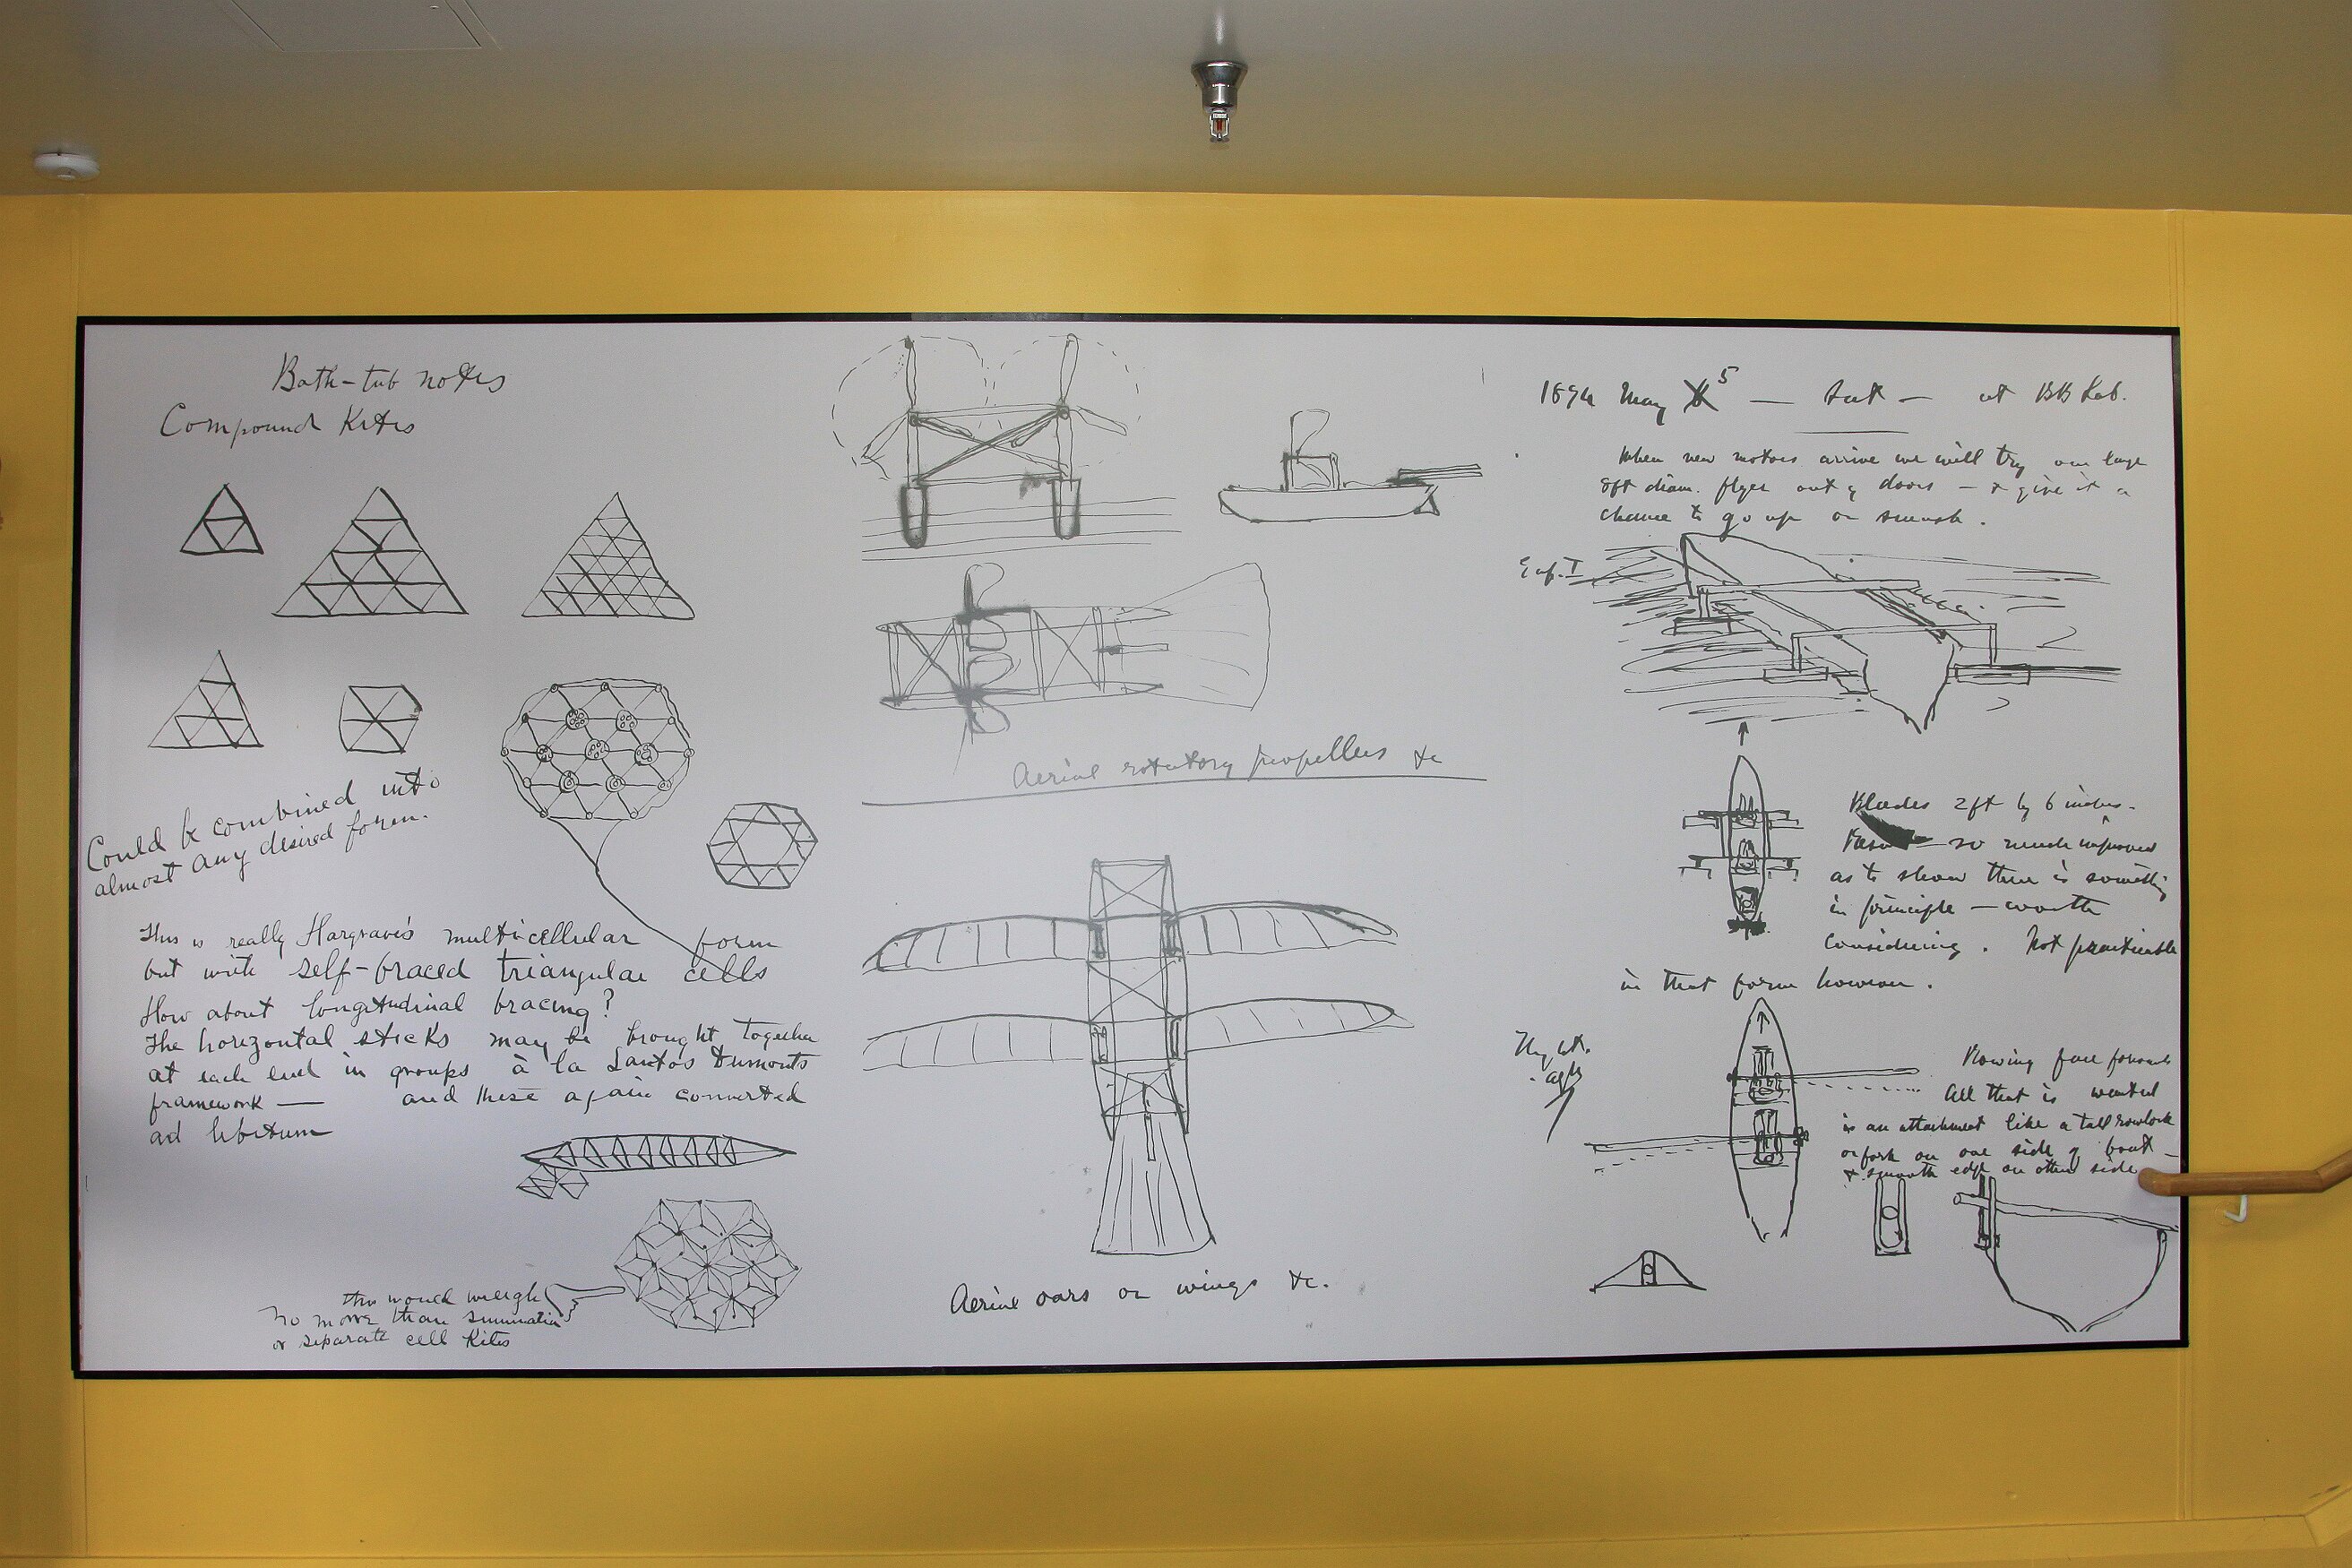 Bath-tub notes
Compound Kites
Could be combined into
almost any desired form.
This is really Hargrave's multicellular form
but with self-braced triangular cells
How about longitudinal bracing?
The horizontal sticks may be brought together
at each end in groups à la Santos Dumonts
framework — and these again converted
ad libitum
this would weigh
no more than summation
or separate cell Kites
Aerial rotatory propellers &c
Aerial oars or wings &c.
May 5 — Sat — at BB Lab.
When new motors arrive we will try our large
8ft diam. flyer out of doors — & give it a
chance to go up or smash.
Blades 2ft by 6 inches.
so much improved
as to show there is something
in principle — worth
considering. Not practicable
in that form however.
Rowing face forward
All that is wanted
is an attachment like a tall rowlock
or fork on one side of boat —
& smooth edge on other side